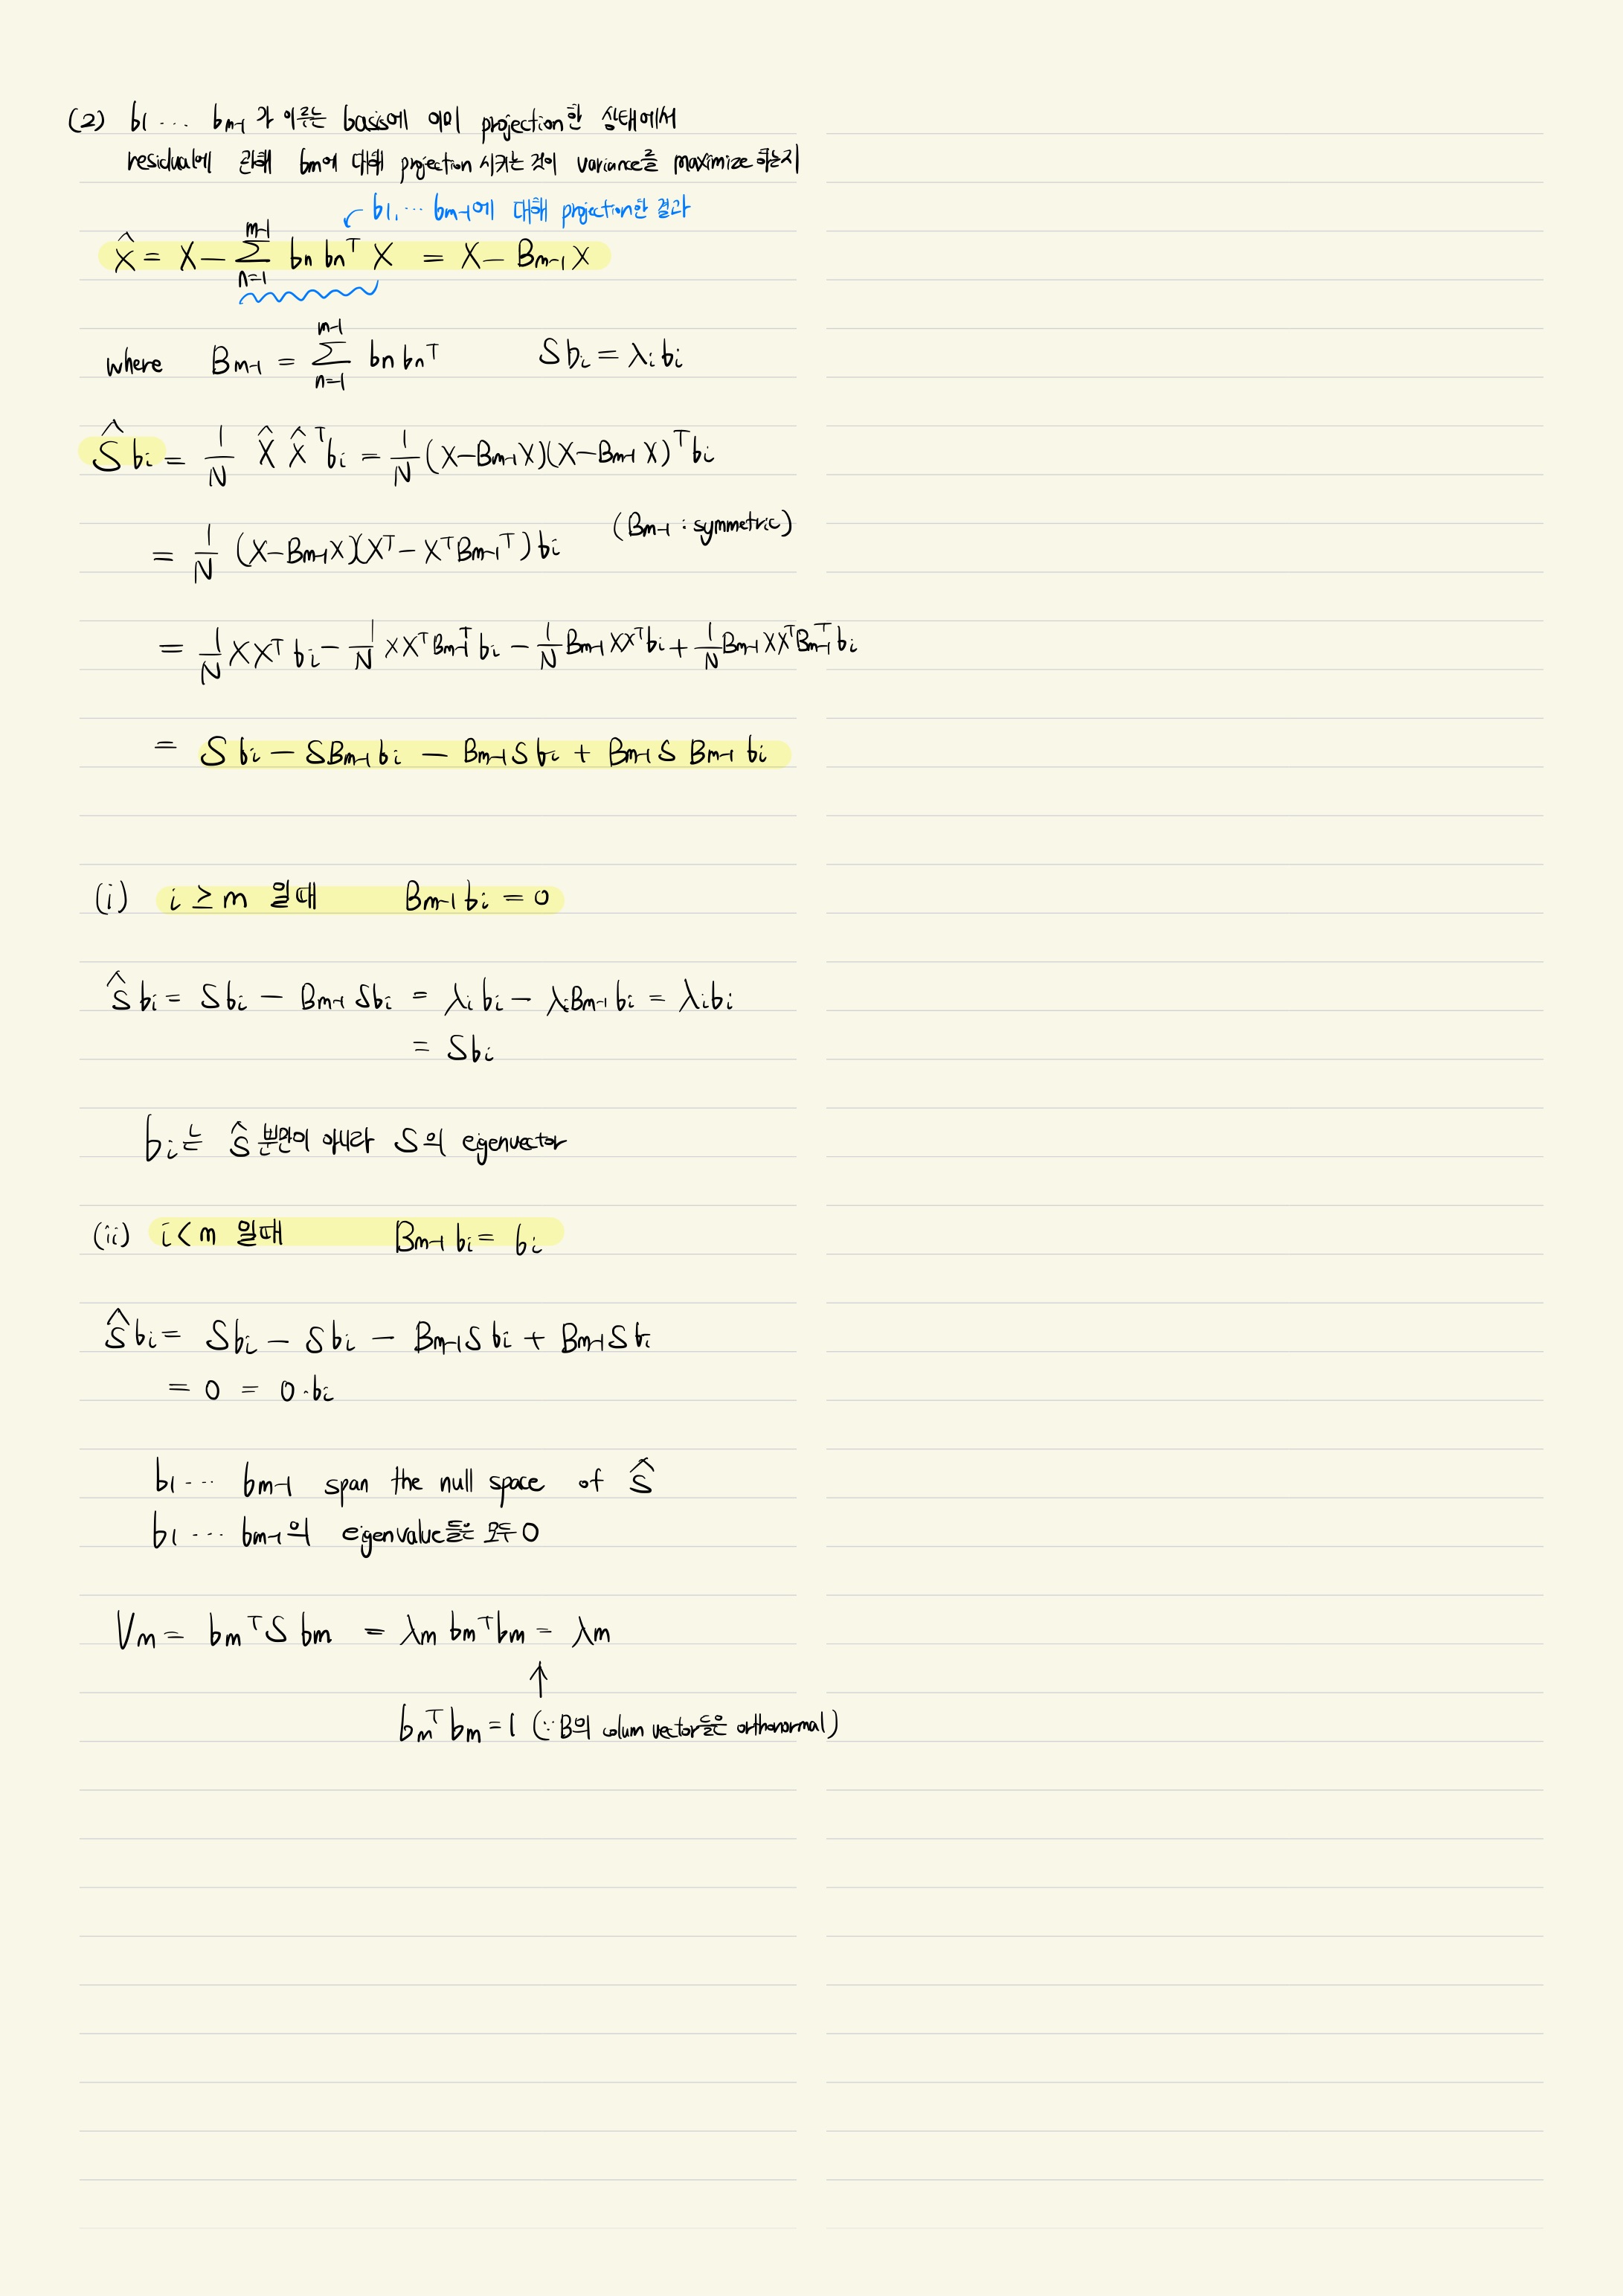 (2) b1 ... bm-1가 이루는 basis에 이미 projection한 상태에서
residual에 관해 bm에 대해 projection 시키는 것이 variance를 maximize 하는지
b1, ... bm-1에 대해 projection한 결과
X̂ = X - Σ_{n=1}^{m-1} bn bn^T X = X - Bm-1 X
where Bm-1 = Σ_{n=1}^{m-1} bn bn^T S bi = λi bi
Ŝ bi = 1/N X̂ X̂^T bi = 1/N (X-Bm-1X)(X-Bm-1X)^T bi
(Bm-1 : symmetric)
= 1/N (X-Bm-1X)(X^T - X^T Bm-1^T) bi
= 1/N XX^T bi - 1/N XX^T Bm-1^T bi - 1/N Bm-1 XX^T bi + 1/N Bm-1 XX^T Bm-1^T bi
= S bi - SBm-1 bi - Bm-1 S bi + Bm-1 S Bm-1 bi
(i) i ≥ m 일때 Bm-1 bi = 0
Ŝ bi = Sbi - Bm-1 Sbi = λi bi - λi Bm-1 bi = λi bi
= Sbi
bi는 Ŝ 뿐만이 아니라 S의 eigenvector
(ii) i < m 일때 Bm-1 bi = bi
Ŝ bi = Sbi - Sbi - Bm-1 S bi + Bm-1 S bi
= 0 = 0·bi
b1 ... bm-1 span the null space of Ŝ
b1 ... bm-1의 eigenvalue들은 모두 0
Vm = bm^T S bm = λm bm^T bm = λm
↑
bm^T bm = 1 (∵ B의 colum vector들은 orthonormal)